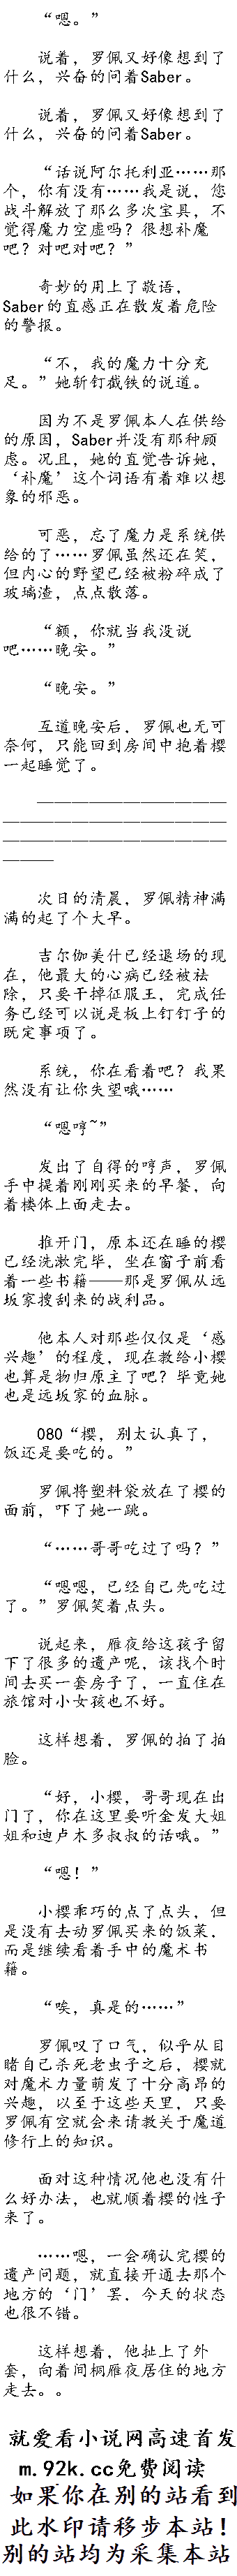 “嗯。”
说着，罗佩又好像想到了
什么，兴奋的问着Saber。
说着，罗佩又好像想到了
什么，兴奋的问着Saber。
“话说阿尔托利亚……那
个，你有没有……我是说，您
战斗解放了那么多次宝具，不
觉得魔力空虚吗？很想补魔
吧？对吧对吧？”
奇妙的用上了敬语，
Saber的直感正在散发着危险
的警报。
“不，我的魔力十分充
足。”她斩钉截铁的说道。
因为不是罗佩本人在供给
的原因，Saber并没有那种顾
虑。况且，她的直觉告诉她，
‘补魔’这个词语有着难以想
象的邪恶。
可恶，忘了魔力是系统供
给的了……罗佩虽然还在笑，
但内心的野望已经被粉碎成了
玻璃渣，点点散落。
“额，你就当我没说
吧……晚安。”
“晚安。”
互道晚安后，罗佩也无可
奈何，只能回到房间中抱着樱
一起睡觉了。
———————————
—————————————
—————————————
———
次日的清晨，罗佩精神满
满的起了个大早。
吉尔伽美什已经退场的现
在，他最大的心病已经被祛
除，只要干掉征服王，完成任
务已经可以说是板上钉钉子的
既定事项了。
系统，你在看着吧？我果
然没有让你失望哦……
“嗯哼~”
发出了自得的哼声，罗佩
手中提着刚刚买来的早餐，向
着楼体上面走去。
推开门，原本还在睡的樱
已经洗漱完毕，坐在窗子前看
着一些书籍——那是罗佩从远
坂家搜刮来的战利品。
他本人对那些仅仅是‘感
兴趣’的程度，现在教给小樱
也算是物归原主了吧？毕竟她
也是远坂家的血脉。
080“樱，别太认真了，
饭还是要吃的。”
罗佩将塑料袋放在了樱的
面前，吓了她一跳。
“……哥哥吃过了吗？”
“嗯嗯，已经自己先吃过
了。”罗佩笑着点头。
说起来，雁夜给这孩子留
下了很多的遗产呢，该找个时
间去买一套房子了，一直住在
旅馆对小女孩也不好。
这样想着，罗佩的拍了拍
脸。
“好，小樱，哥哥现在出
门了，你在这里要听金发大姐
姐和迪卢木多叔叔的话哦。”
“嗯！”
小樱乖巧的点了点头，但
是没有去动罗佩买来的饭菜，
而是继续看着手中的魔术书
籍。
“唉，真是的……”
罗佩叹了口气，似乎从目
睹自己杀死老虫子之后，樱就
对魔术力量萌发了十分高昂的
兴趣，以至于这些天里，只要
罗佩有空就会来请教关于魔道
修行上的知识。
面对这种情况他也没有什
么好办法，也就顺着樱的性子
来了。
……嗯，一会确认完樱的
遗产问题，就直接开通去那个
地方的‘门’罢，今天的状态
也很不错。
这样想着，他扯上了外
套，向着间桐雁夜居住的地方
走去。。
就爱看小说网高速首发
m.92k.cc免费阅读
如果你在别的站看到
此水印请移步本站！
别的站均为采集本站